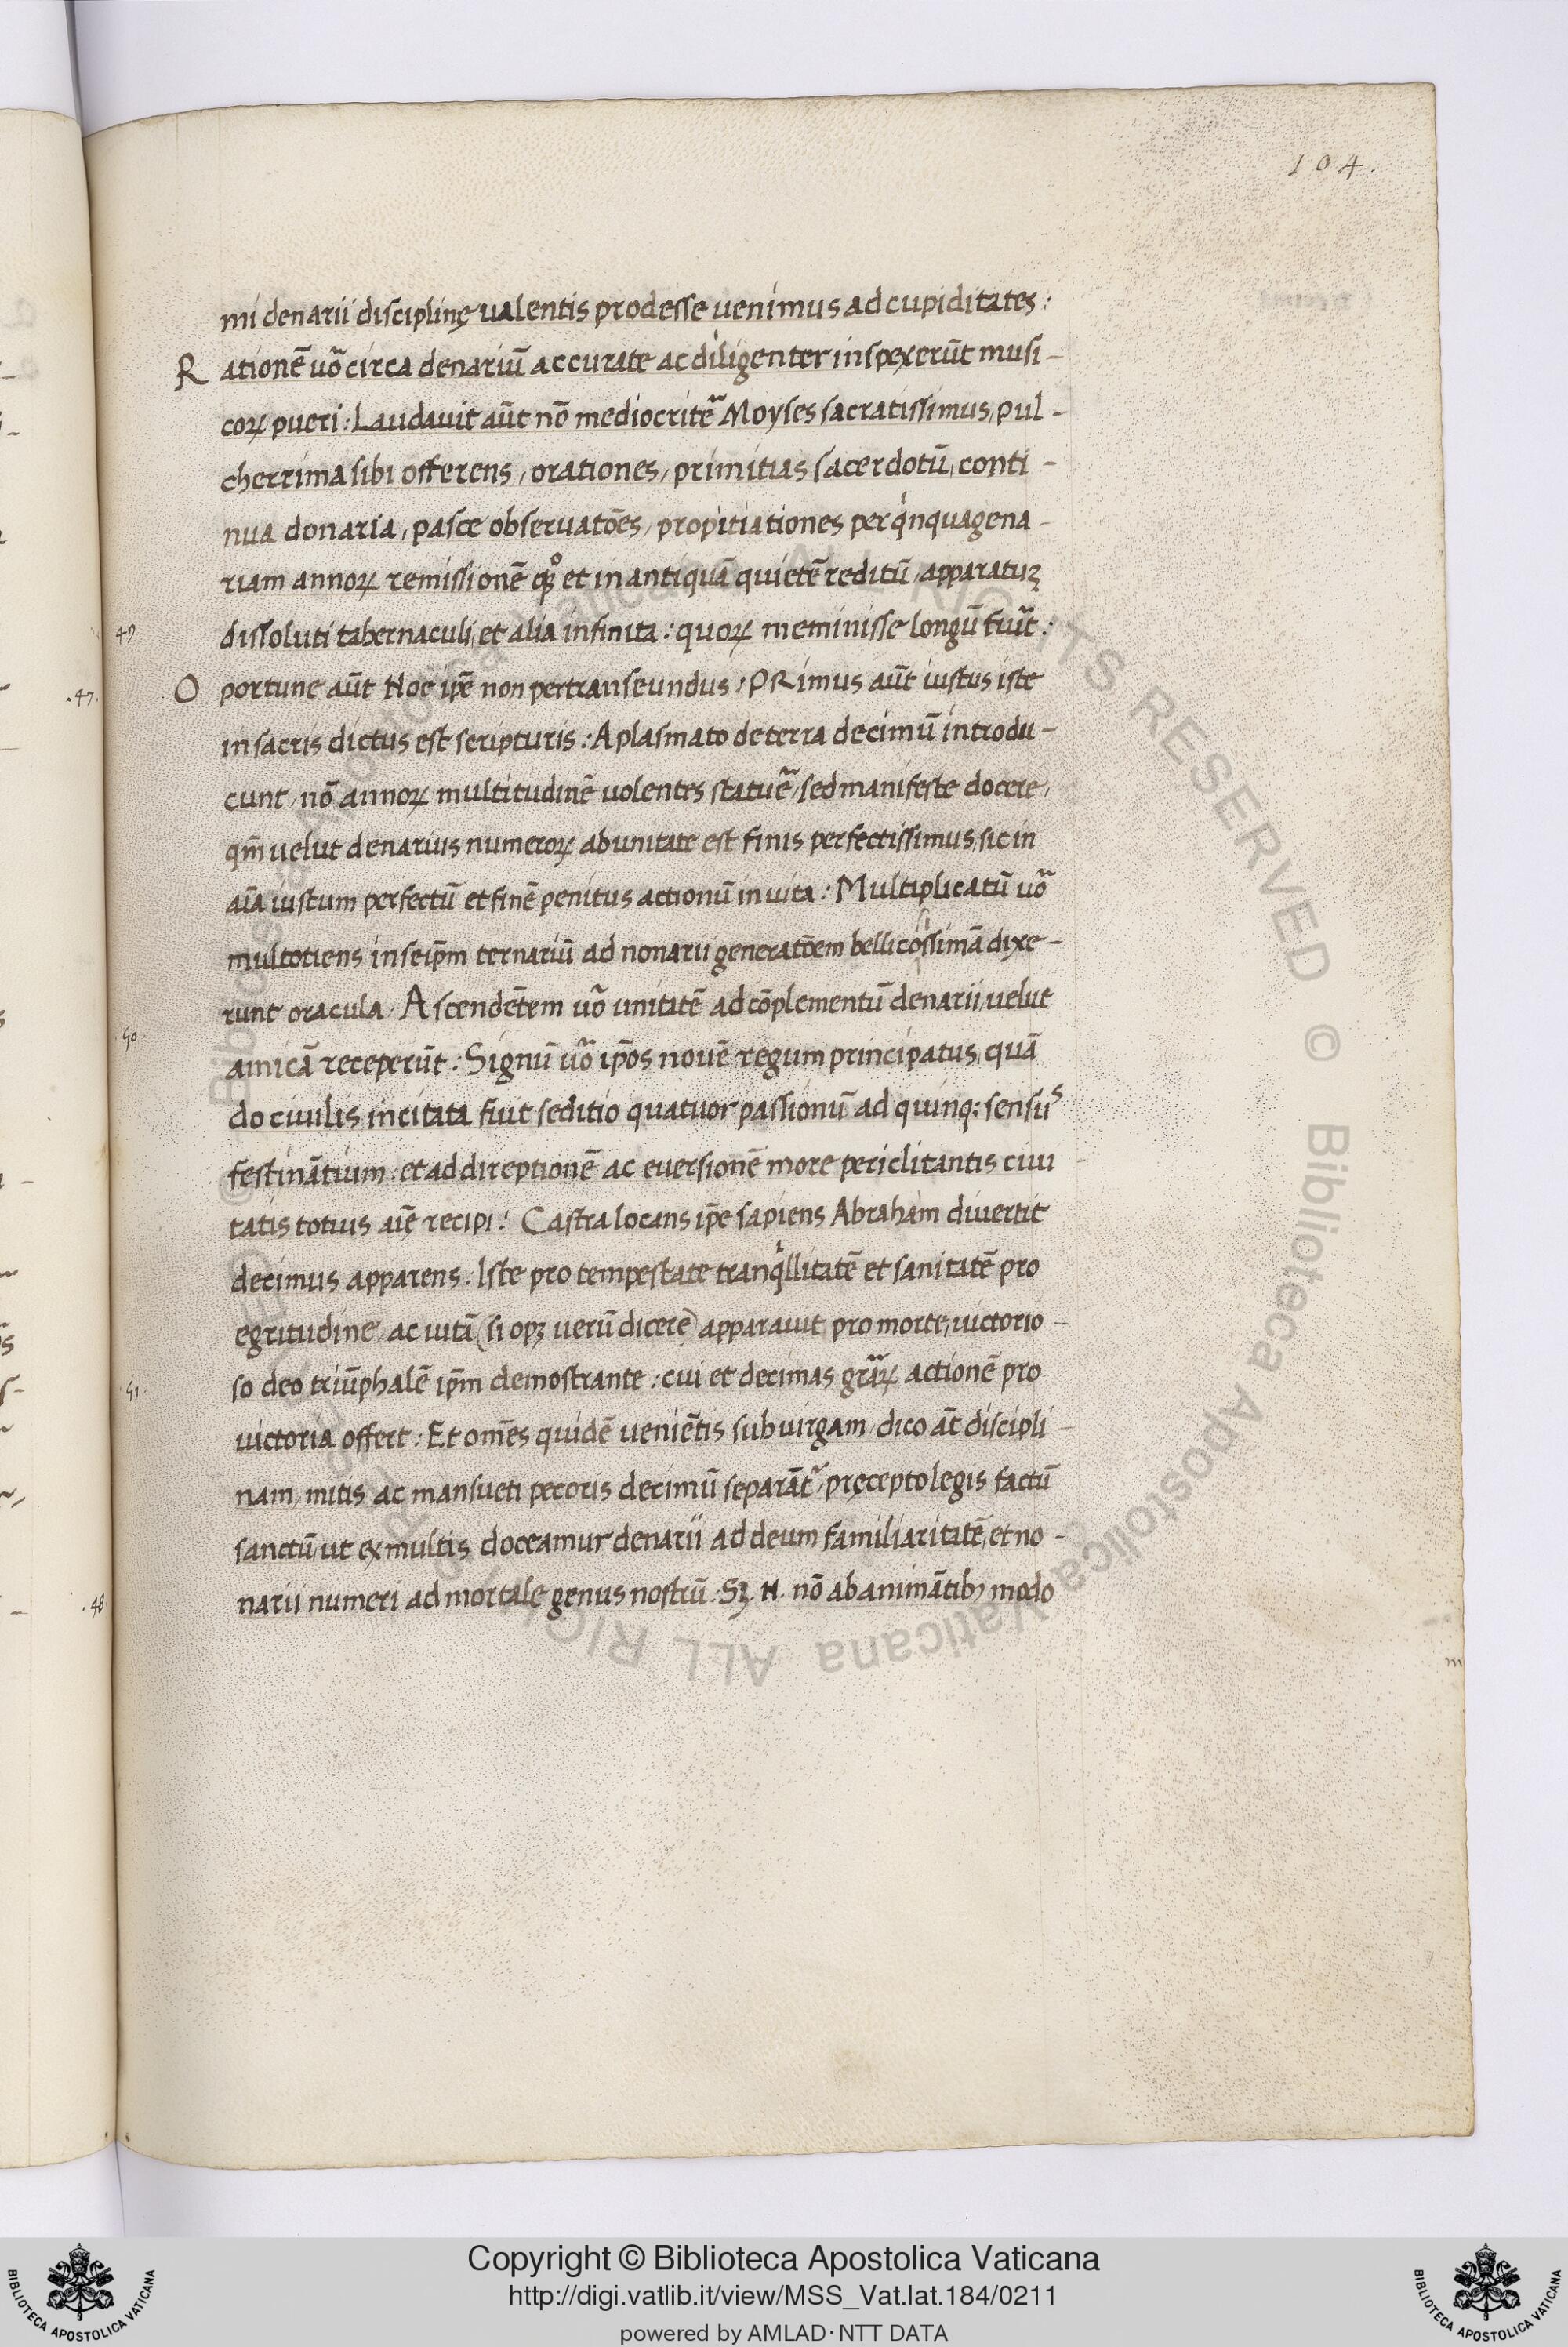 104.
mi denarii disciplinę valentis prodesse venimus ad cupiditates:
R ationē uō circa denariū accurate ac diligenter inspexerūt musi-
coꝝ pueri: Laudavit aūt nō mediocritē Moyses sacratissimus, pul-
cherrima sibi offerens, orationes, primitias sacerdotū, conti-
nua donaria, pasce observatōes, propitiationes per qͥnquagena-
riam annoꝝ remissionē et in antiquā quietē reditū, apparatuꝫ
49
dissoluti tabernaculi, et alia infinita: quoꝝ meminisse longū fuit:
.47.
O portune aūt Noe ip̄e non pertranseundus: PRimus aūt iustus iste
in sacris dictus est scripturis: A plasmato de terra decimū introdu-
cunt, nō annoꝝ multitudinē volentes statuē, sed manifeste docere,
qm̄ velut denarius numeroꝝ ab unitate est finis perfectissimus, sic in
aīa iustum perfectū et finē penitus actionū in vita: Multiplicatū uō
multotiens in seip̄m ternariū ad nonarii generatōem bellicosissimā dixe-
runt oracula. Ascendētem uō unitatē ad cōplementū denarii, velut
50.
amicā receperūt: Signū uō ip̄os novē regum principatus, quā
do civilis incitata fuit seditio quatuor passionū ad quinqꝫ sensuˢ
festinātium: et ad direptionē ac eversionē more periclitantis civi
tatis totius aīę recipi: Castra locans ip̄e sapiens Abraham divertit
decimus apparens. Iste pro tempestate tranqͥllitatē et sanitatē pro
egritudine, ac vitā (si opꝫ verū dicere) apparavit pro morte, victorio-
51.
so deo triūphalē ip̄m demostrante: cui et decimas gr̄aꝝ actionē pro
victoria offert: Et om̄es quidē veniētis sub virgam, dico āt discipli-
nam, mitis ac mansueti pecoris decimū separāt, pręcepto legis factū
sanctū, ut ex multis doceamur denarii ad deum familiaritatē, et no-
.48
narii numeri ad mortale genus nostrū. Sꝫ. N. nō ab animātibꝫ modo
© Biblioteca Apostolica Vaticana ALL RIGHTS RESERVED © Biblioteca Apostolica Vaticana ALL RIGHTS RESERVED
Copyright © Biblioteca Apostolica Vaticana
http://digi.vatlib.it/view/MSS_Vat.lat.184/0211
powered by AMLAD·NTT DATA
BIBLIOTECA APOSTOLICA VATICANA
BIBLIOTECA APOSTOLICA VATICANA